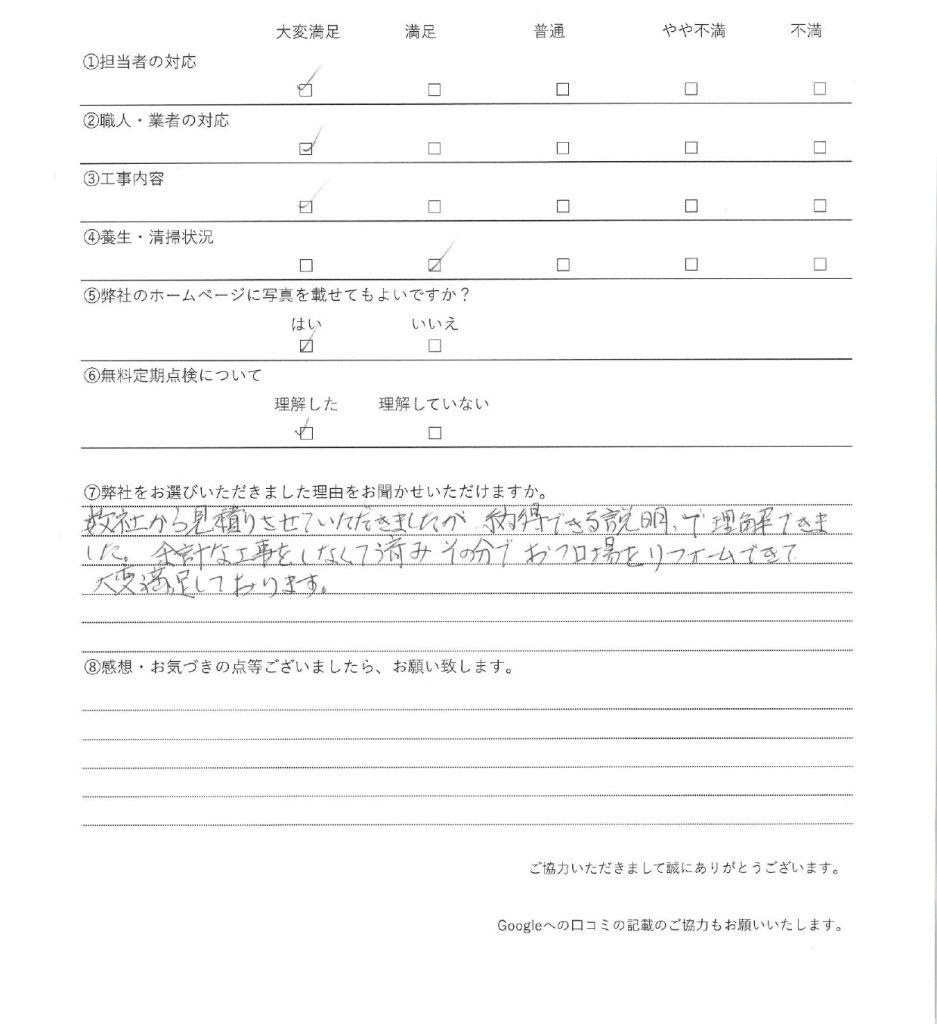 大変満足 満足 普通 やや不満 不満
①担当者の対応
☑ ☐ ☐ ☐ ☐
②職人・業者の対応
☑ ☐ ☐ ☐ ☐
③工事内容
☑ ☐ ☐ ☐ ☐
④養生・清掃状況
☐ ☑ ☐ ☐ ☐
⑤弊社のホームページに写真を載せてもよいですか？
はい いいえ
☑ ☐
⑥無料定期点検について
理解した 理解していない
☑ ☐
⑦弊社をお選びいただきました理由をお聞かせいただけますか。
数社から見積りさせていただきましたが、納得できる説明、で理解できま
した。余計な工事をしなくて済みその分でおフロ場をリフォームできて
大変満足しております。
⑧感想・お気づきの点等ございましたら、お願い致します。
ご協力いただきまして誠にありがとうございます。
Googleへの口コミの記載のご協力もお願いいたします。